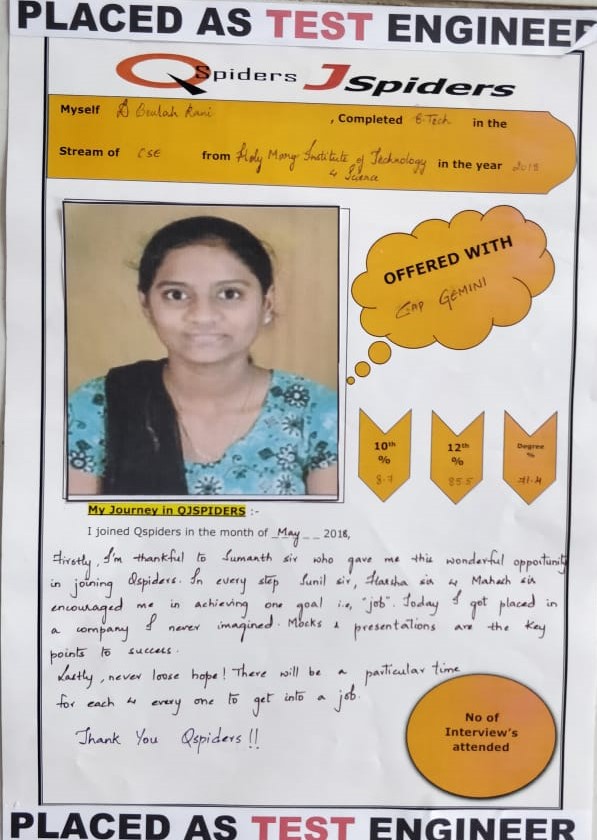 PLACED AS TEST ENGINEER
QSpiders JSpiders
Myself D Beulah Rani , Completed B-Tech in the
Stream of CSE from Holy Mary Institute of Technology & Science in the year 2018
OFFERED WITH
CAP GEMINI
10th % 8.7
12th % 85.5
Degree % 71.4
My Journey in QJSPIDERS :-
I joined Qspiders in the month of May 2018,
Firstly, I'm thankful to Sumanth sir who gave me this wonderful opportunity
in joining Qspiders. In every step Sunil sir, Harsha sir & Mahesh sir
encouraged me in achieving one goal i.e, "job". Today I got placed in
a company I never imagined. Mocks & presentations are the key
points to success.
Lastly, never loose hope! There will be a particular time
for each & every one to get into a job.
Thank You Qspiders!!
No of
Interview's
attended
PLACED AS TEST ENGINEER